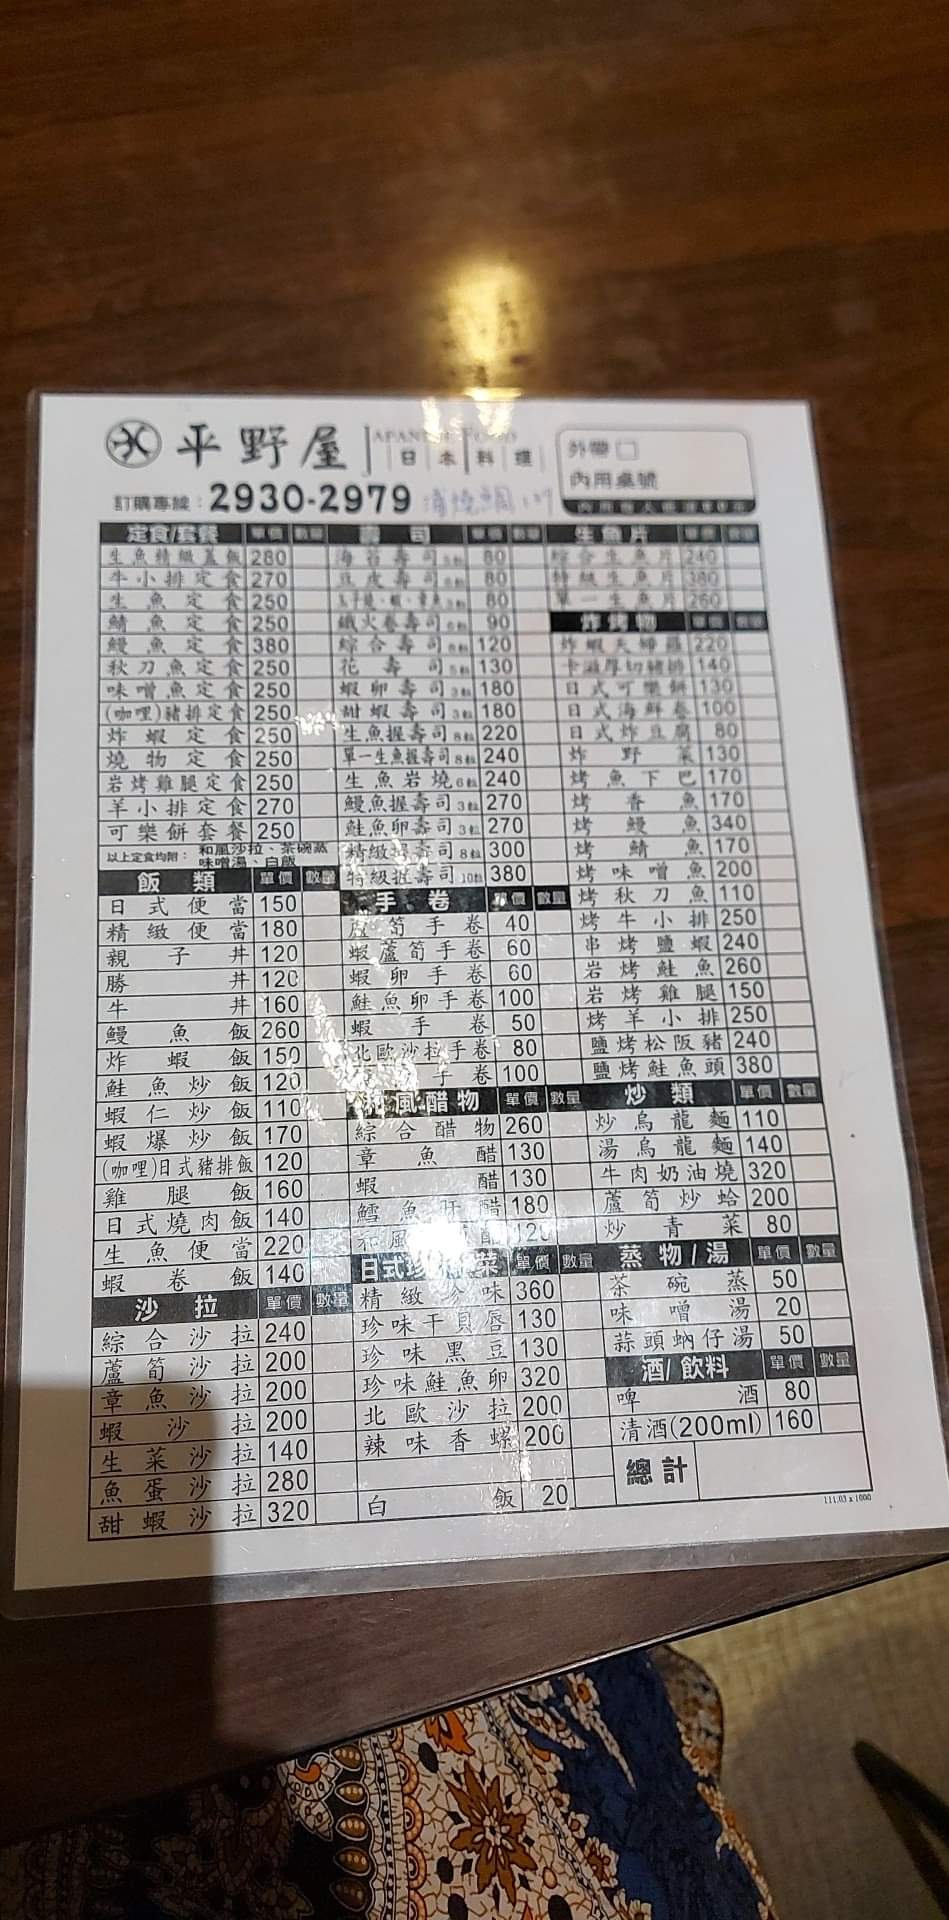 平野屋 JAPANESE FOOD
日本料理
外帶□
內用桌號
訂購專線：2930-2979
定食/套餐 單價 數量
生魚精緻蓋飯 280
牛小排定食 270
生魚定食 250
鯖魚定食 250
鰻魚定食 380
秋刀魚定食 250
味噌魚定食 250
(咖哩)豬排定食 250
炸蝦定食 250
燒物定食 250
岩烤雞腿定食 250
羊小排定食 270
可樂餅套餐 250
以上定食均附：和風沙拉、茶碗蒸
味噌湯、白飯
飯類 單價 數量
日式便當 150
精緻便當 180
親子丼 120
勝丼 120
牛丼 160
鰻魚飯 260
炸蝦飯 150
鮭魚炒飯 120
蝦仁炒飯 110
蝦爆炒飯 170
(咖哩)日式豬排飯 120
雞腿飯 160
日式燒肉飯 140
生魚便當 220
蝦卷飯 140
沙拉 單價 數量
綜合沙拉 240
蘆筍沙拉 200
章魚沙拉 200
蝦沙拉 200
生菜沙拉 140
魚蛋沙拉 280
甜蝦沙拉 320
壽司 單價 數量
海苔壽司 80
豆皮壽司 80
80
鐵火卷壽司 90
綜合壽司 120
花壽司 130
蝦卵壽司 3粒 180
甜蝦壽司 3粒 180
生魚握壽司 8粒 220
單一生魚握壽司 8粒 240
生魚岩燒 6粒 240
鰻魚握壽司 3粒 270
鮭魚卵壽司 3粒 270
精緻握壽司 8粒 300
特級握壽司 10粒 380
手卷 單價 數量
蘆筍手卷 40
蝦蘆筍手卷 60
蝦卵手卷 60
鮭魚卵手卷 100
蝦手卷 50
北歐沙拉手卷 80
手卷 100
和風醋物 單價 數量
綜合醋物 260
章魚醋 130
蝦醋 130
鱈魚肝醋 180
和風醋 120
日式珍味菜 單價 數量
精緻珍味 360
珍味干貝唇 130
珍味黑豆 130
珍味鮭魚卵 320
北歐沙拉 200
辣味香螺 200
白飯 20
生魚片 單價 數量
綜合生魚片 240
特級生魚片 380
單一生魚片 260
炸烤物 單價 數量
炸蝦天婦羅 220
卡滋厚切豬排 140
日式可樂餅 130
日式海鮮卷 100
日式炸豆腐 80
炸野菜 130
烤魚下巴 170
烤香魚 170
烤鰻魚 340
烤鯖魚 170
烤味噌魚 200
烤秋刀魚 110
烤牛小排 250
串烤鹽蝦 240
岩烤鮭魚 260
岩烤雞腿 150
烤羊小排 250
鹽烤松阪豬 240
鹽烤鮭魚頭 380
炒類 單價 數量
炒烏龍麵 110
湯烏龍麵 140
牛肉奶油燒 320
蘆筍炒蛤 200
炒青菜 80
蒸物/湯 單價 數量
茶碗蒸 50
味噌湯 20
蒜頭蚋仔湯 50
酒/飲料 單價 數量
啤酒 80
清酒(200ml) 160
總計
111.03 x 1000